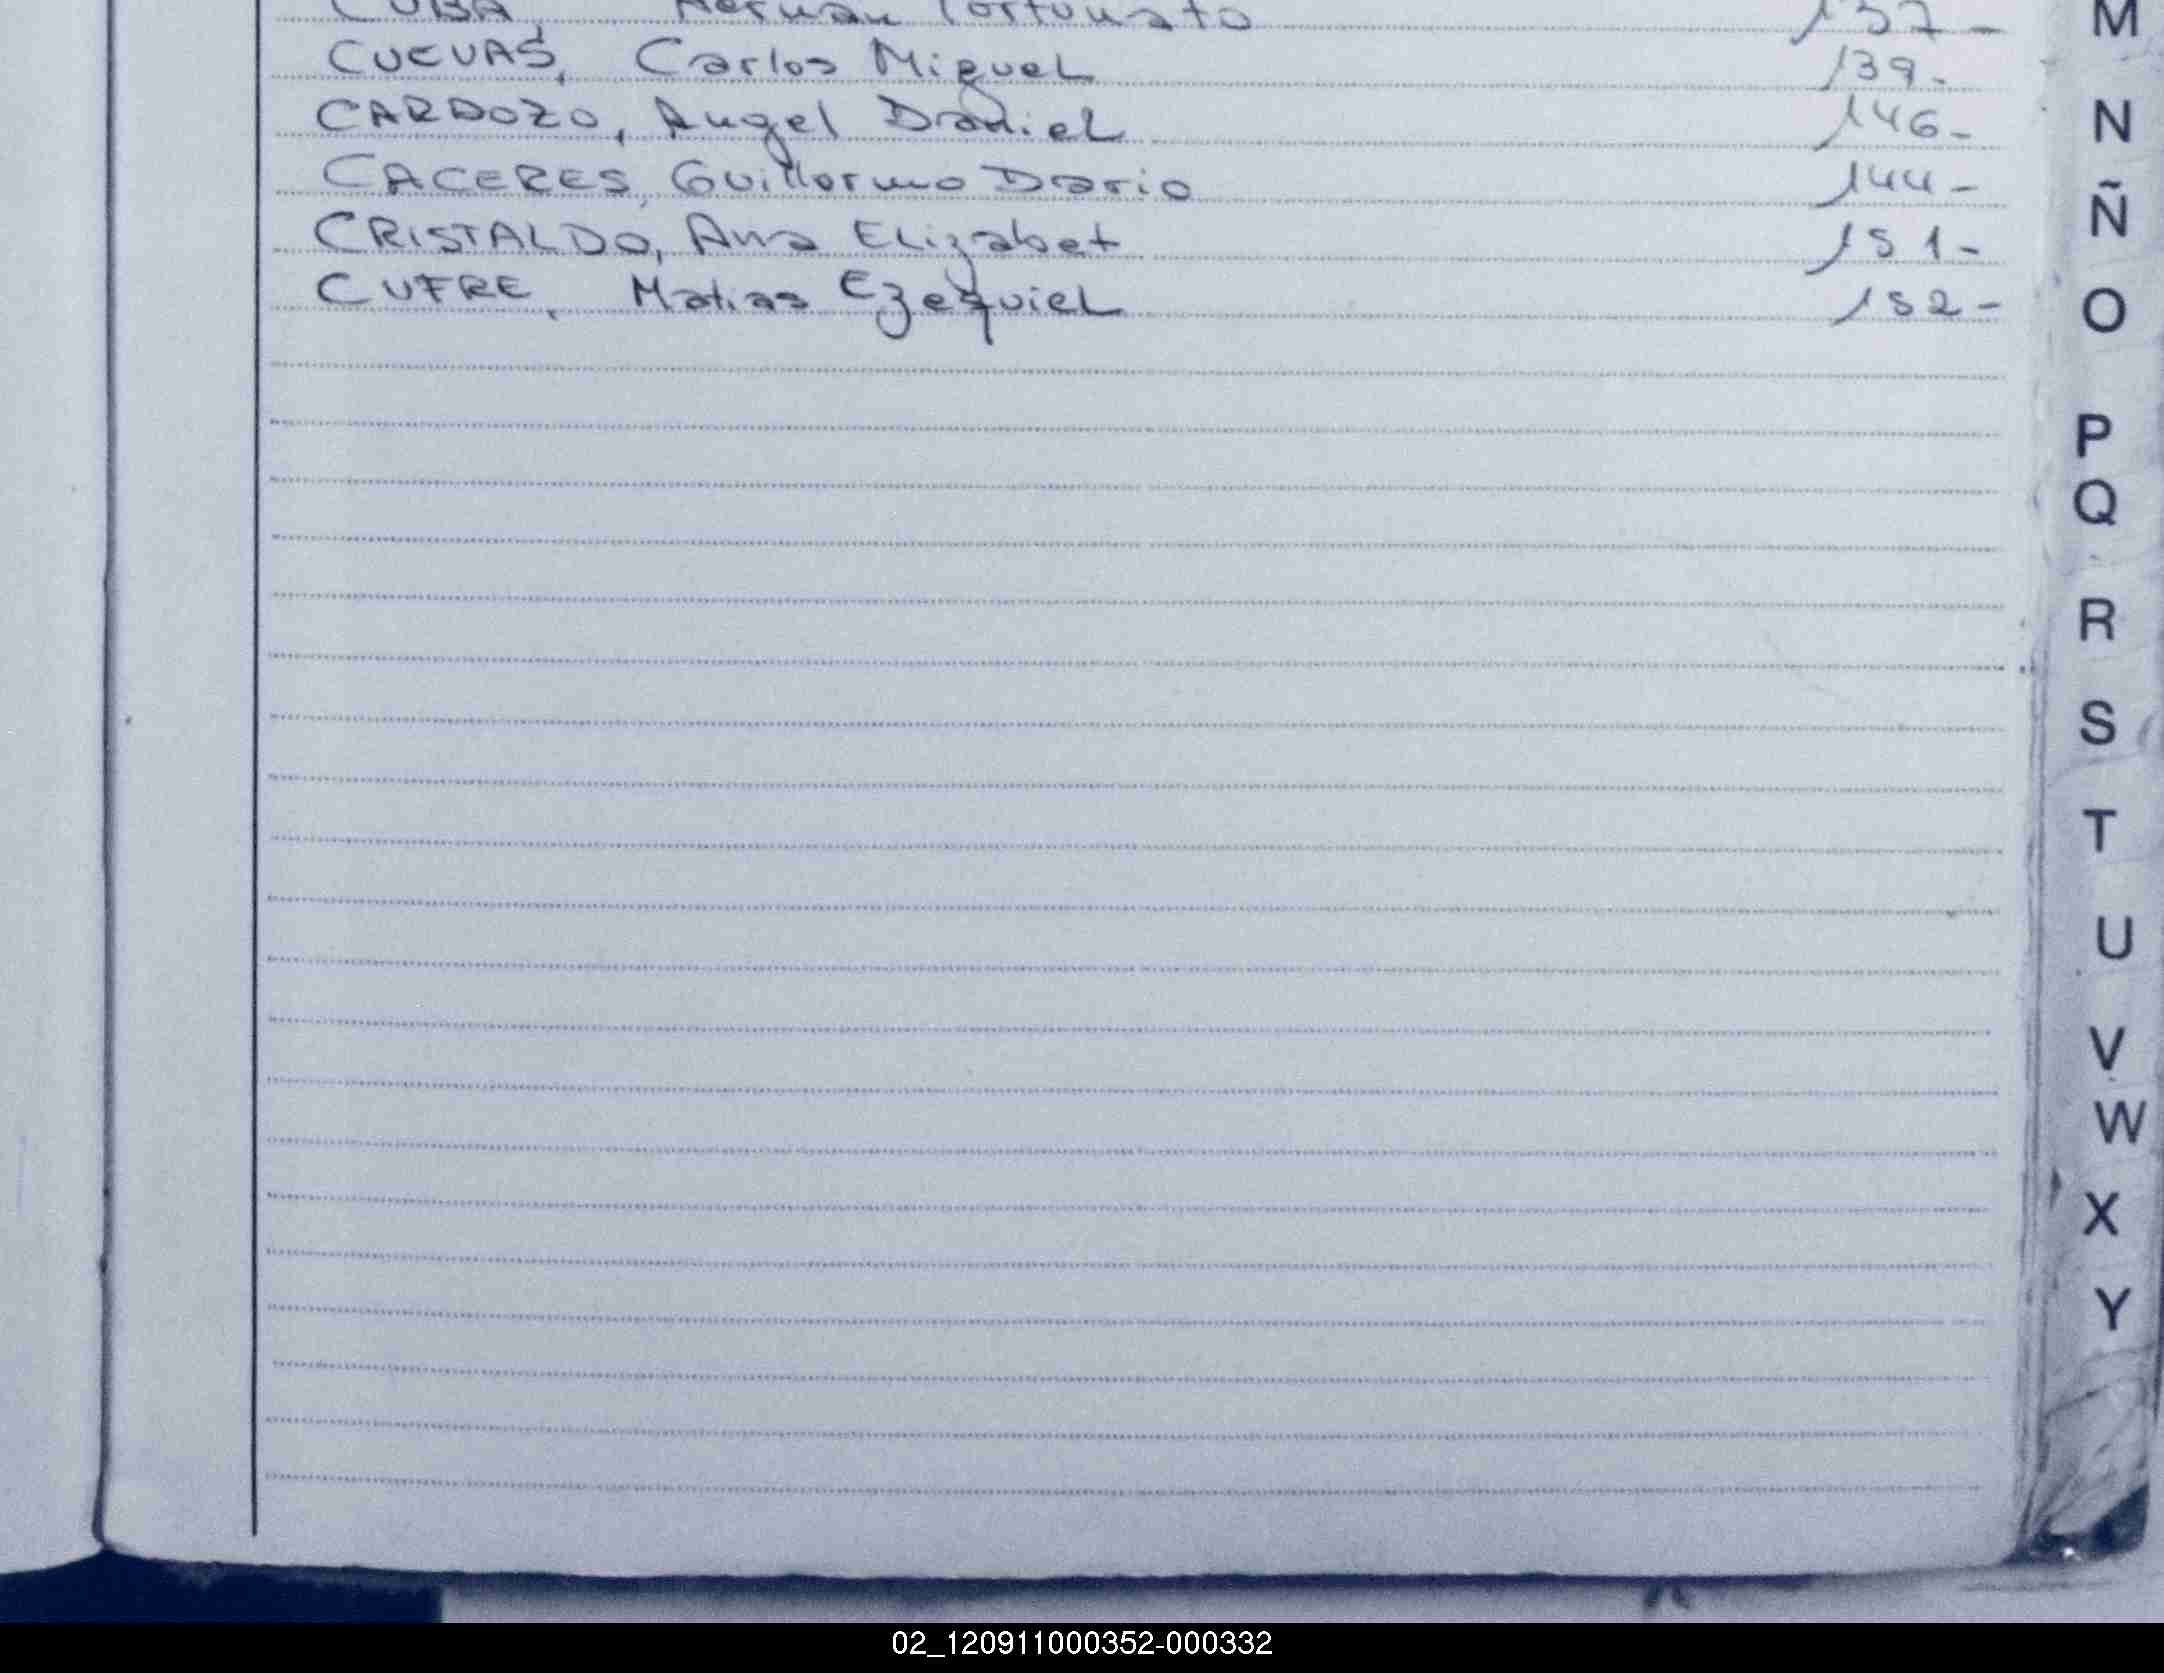 CUBA, Hernan Fortunato 137-
CUEVAS, Carlos Miguel 139-
CARDOZO, Angel Daniel 146-
CACERES, Guillermo Dario 144-
CRISTALDO, Ana Elizabet 151-
CUFRE, Matias Ezequiel 152-
M
N
Ñ
O
P
Q
R
S
T
U
V
W
X
Y
02_120911000352-000332